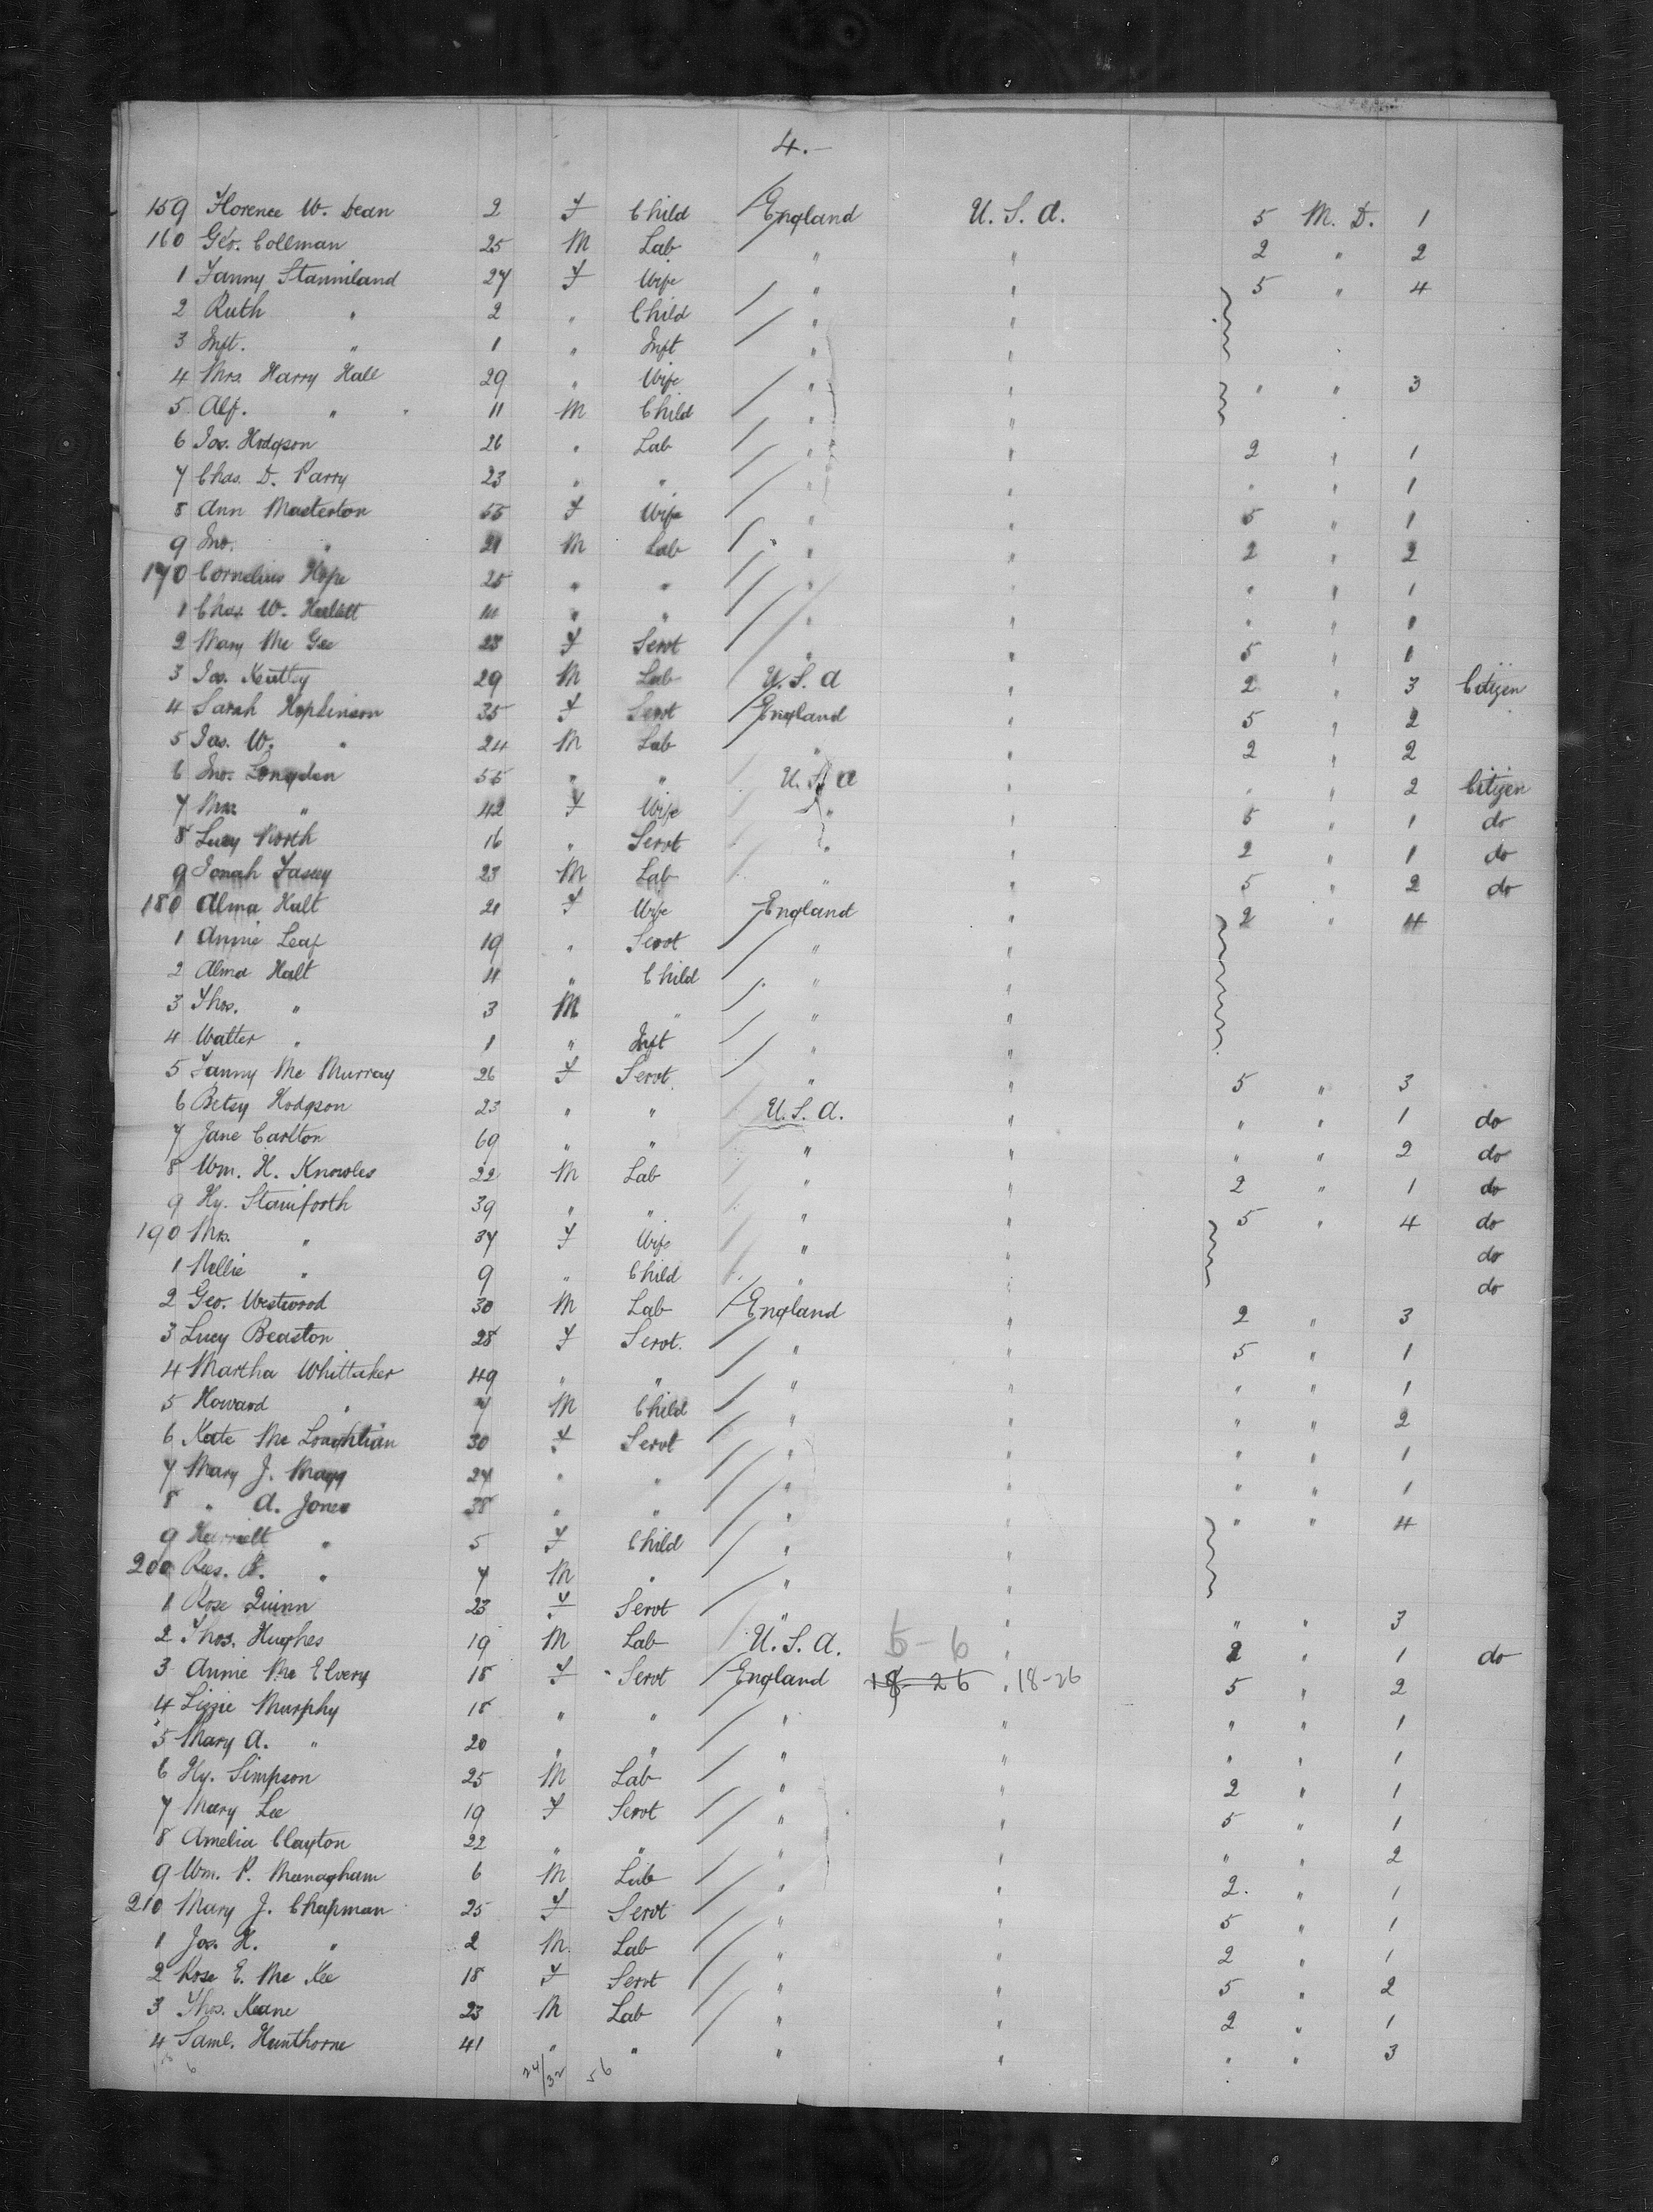 4.—
159 Florence W. Dean 2 F Child England U.S.A. 5 M.D. 1
160 Geo. Collman 25 M Lab " " 2 " 2
1 Fanny Stanniland 27 F Wife " " 5 " 4
2 Ruth " 2 " Child " "
3 Inft. " 1 " Inft " "
4 Mrs. Harry Hall 29 " Wife " " " " 3
5 Alf. " 11 M Child " "
6 Jos. Hodgson 26 " Lab " " 2 " 1
7 Chas. D. Parry 23 " " " " " " 1
8 Ann Masterton 55 F Wife " " 5 " 1
9 Jno. " 21 M Lab " " 2 " 2
170 Cornelius Hope 25 " " " " " " 1
1 Chas. W. " " " " " " 1
2 Mary Mc Gee 23 F Servt " " 5 " 1
3 Jas. 29 M Lab U.S.A " 2 " 3 Citizen
4 Sarah Hopkinson 35 F Servt England " 5 " 2
5 Jas. W. " 24 M Lab " " 2 " 2
6 Jno. Longden 55 " " U.S.A " " " 2 Citizen
7 Mrs. " 42 F Wife " " 5 " 1 do
8 Lucy North 16 " Servt " " 2 " 1 do
9 Jonah 23 M Lab " " 5 " 2 do
180 Alma Halt 21 F Wife England " 2 " 4
1 Annie Leaf 19 " Servt " "
2 Alma Halt 4 " Child " "
3 Thos. " 3 M " " "
4 Walter " 1 " Inft " "
5 Fanny Mc Murray 26 F Servt. " " 5 " 3
6 Betsy Hodgson 23 " " U.S.A. " " " 1 do
7 Jane Carlton 69 " " " " " " 2 do
8 Wm. H. Knowles 22 M Lab " " 2 " 1 do
9 Hy. Staniforth 39 " " " " 5 " 4 do
190 Mrs. " 37 F Wife " " do
1 Nellie " 9 " Child " " do
2 Geo. Westwood 30 M Lab England " 2 " 3
3 Lucy Beaston 28 F Servt. " " 5 " 1
4 Martha Whittaker 49 " " " " " " 1
5 Howard " 7 M Child " " " " 2
6 Kate Mc Loughlian 30 F Servt " " " " 1
7 Mary J. 27 " " " " " " 1
8 " A. Jones 38 " " " " " " 4
9 Harriett " 5 F Child " "
200 Rees. " 7 M " " "
1 Rose Quinn 23 F Servt " " " " 3
2 Thos. Hughes 19 M Lab U.S.A. 5-6 " 2 " 1 do
3 Annie Mc Elvery 18 F Servt England 18-26 " 18-26 5 " 2
4 Lizzie Murphy 18 " " " " " " 1
5 Mary A. " 20 " " " " " " 1
6 Hy. Simpson 25 M Lab " " 2 " 1
7 Mary Lee 19 F Servt " " 5 " 1
8 Amelia Clayton 22 " " " " " " 2
9 Wm. P. Managham 6 M Lab " " 2. " 1
210 Mary J. Chapman 25 F Servt " " 5 " 1
1 Jos. H. " 2 M Lab " " 2 " 1
2 Rose E. Mc Kee 18 F Servt " " 5 " 2
3 Thos. Keane 23 M Lab " " 2 " 1
4 Saml. Hunthorne 41 " " " " " " 3
24/32 56